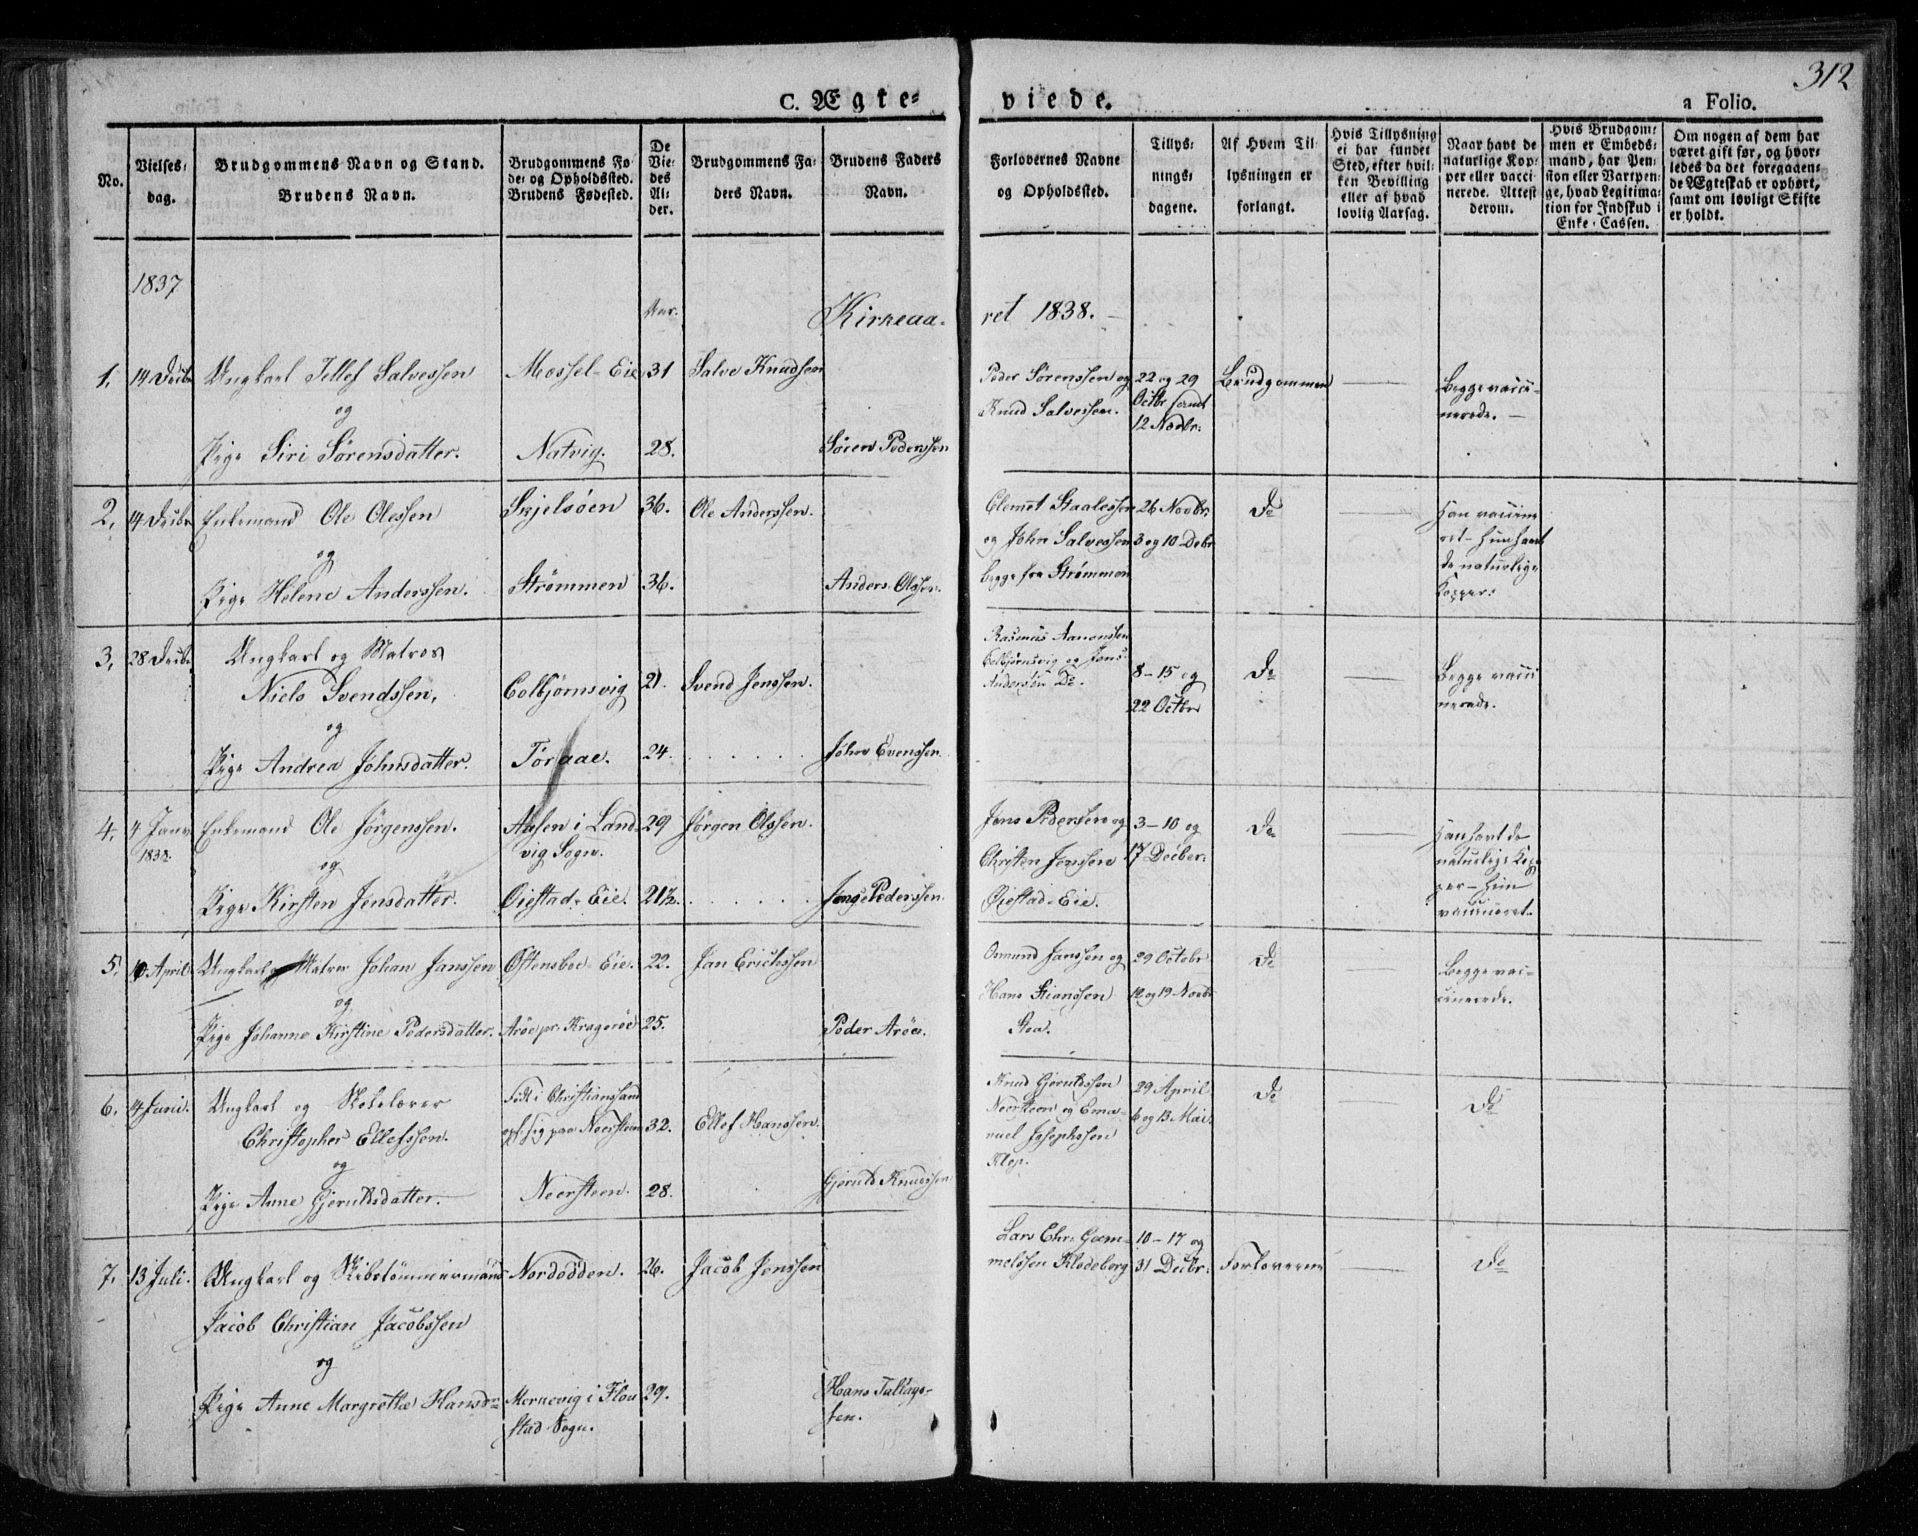 312
C. Ægte=
viede.
a Folio.
No.
Vielses=
dag.
Brudgommens Navn og Stand.
Brudens Navn.
Brudgommens Fø=
de= og Opholdssted.
Brudens Fødested.
De
Vie=
des
Al=
der.
Brudgommens Fa=
ders Navn.
Brudens Faders
Navn.
Forlovernes Navne
og Opholdssted.
Tillys=
nings=
dagene.
Af Hvem Til=
lysningen er
forlangt.
Hvis Tillysning
ei har fundet
Sted, efter hvil=
ken Bevilling
eller af hvad
lovlig Aarsag.
Naar havt de
naturlige Kop=
per eller vacci=
nerede. Attest
derom.
Hvis Brudgom=
men er Embeds=
mand, har Pen=
sion eller Vartpen=
ge, hvad Legitima=
tion for Indskud i
Enke=Cassen.
Om nogen af dem har
været gift før, og hvor=
ledes da det foregaaen=
de Ægteskab er ophørt,
samt om lovligt Skifte
er holdt.
1837
Aar.
Kirkeaa=
ret 1838.
1.
14 Decbr
Ungkarl Tellef Salvessen
og
Pige Siri Sørensdatter.
Mossel-Eie
Natvig.
31
28.
Salve Knudsen
Søren Pederssen
Peder Sørenssen og
Knud Salvessen.
22 og 29
Octbr samt
12 Novbr:
Brudgommen
Begge vacci=
nerede.
2.
14 Decbr
Enkemand Ole Olessen
og
Pige Helene Anderssen.
Skjelsøen
Strømmen
36.
36.
Ole Anderssen.
Anders Olssen.
Clemet Staalessen
og John Salvessen
begge fra Strømmen
26 Novbr:
3 og 10 Debr
Do
Han vaccine
ret - hun havt
de naturlige
Kopper.
3.
28 Decbr
Ungkarl og Matros
Niels Svendssen,
og
Pige Andrea Johnsdatter.
Colbjørnsvig
Toraae.
21.
24.
Svend Jenssen.
John Evenssen.
Rasmus Aanonssen
Colbjørnsvig og Jens
Andersen Do.
8-15 og
22 Octbr
Do
Begge vacci
nerede.
4.
4 Janv
1838.
Enkemand Ole Jørgenssen.
og
Pige Kirsten Jensdatter.
Aasen i Land
vig Sogn.
Øiestad-Eie.
29
21½.
Jørgen Olssen.
Jens Pederssen.
Jens Pedersen og
Christen Jenssen
Øiestad-Eie.
3-10 og
17 Decber:
Do
Han havt de
naturlige Kop
per - hun
vaccineret.
5.
10 April
Ungkarl og Matros Johan Janssen
og
Pige Johanne Kirstine Pedersdatter.
Østensboe-Eie.
Arøe pr. Kragerøe
22.
25.
Jan Erichssen
Peder Arøe.
Osmund Janssen og
Hans Stianssen
Stoa.
29 Octobr
12 og 19 Novbr
Do
Begge vac=
cinerede.
6.
14 Juni.
Ungkarl og Skolelærer
Christopher Ellefssen.
og
Pige Anne Gjeruldsdatter.
Født i Christianssand
opholdsig paa Neersteen
Neersteen.
32.
28.
Ellef Hanssen.
Gjeruld Knudssen
Knud Gjeruldssen
Neersteen og Ema=
nuel Josephssen
Klep.
29 April
6 og 13 Mai.
Do
Do
7.
13 Juli.
Ungkarl og Skibstømmermand
Jacob Christian Jacobssen
og
Pige Anne Margrethe Hansdr
Nordodden.
Mernevig i Flou
stad Sogn.
26.
29.
Jacob Jenssen
Hans Tallags=
sen.
Lars Chr: Gam=
melssen Klodeberg
10-17 og
31 Decbr:
Forloverne
Do